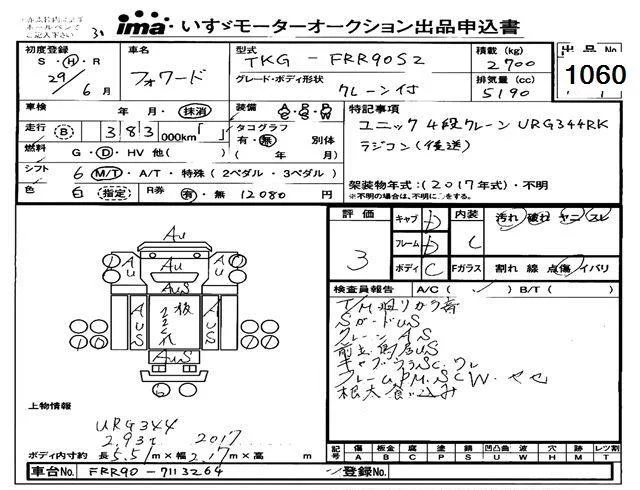 ima いすゞモーターオークション出品申込書
初度登録 車名 型式 TKG - FRR90S2 積載(kg) 2700 出品No.
S・H・R 29年 6月 フォワード グレード・ボディ形状 クレーン付 排気量(cc) 5190 1060
車検 年・月・抹消 装備 特記事項
走行 B 383 000km「 」 タコグラフ 有・無 別体 (年 月) ユニック 4段クレーン URG344RK
燃料 G・D・HV 他( ) ラジコン(後送)
シフト 6 M/T・A/T・特殊(2ペダル・3ペダル)
色 白 指定 R券 有・無 12080円 架装物年式:(2017年式)・不明
※不明の場合は、不明に○をする。
評価 3 キャブ D 内装 C 汚れ 破れ ヤニ スレ
フレーム D
ボディ C Fガラス 割れ 線 点傷 イバリ
検査員報告 A/C( )・B/T( )
T/M廻りカラ音
SガードUS
クレーンAS
キャブフラSC.ワレ
フレームP.M.SCW.
根太食い込み
Au
Au
AuS
AuS
上物情報
URG344
2.93t 2017
ボディ内寸約 長 5.51m×幅 2.17m×高 m
記号 傷 A 板金 B 腐 C 塗 P 錆 S 凹凸曲 U 波 W 穴 H 跡 M レツ割 T
車台No. FRR90-7113264 登録No.